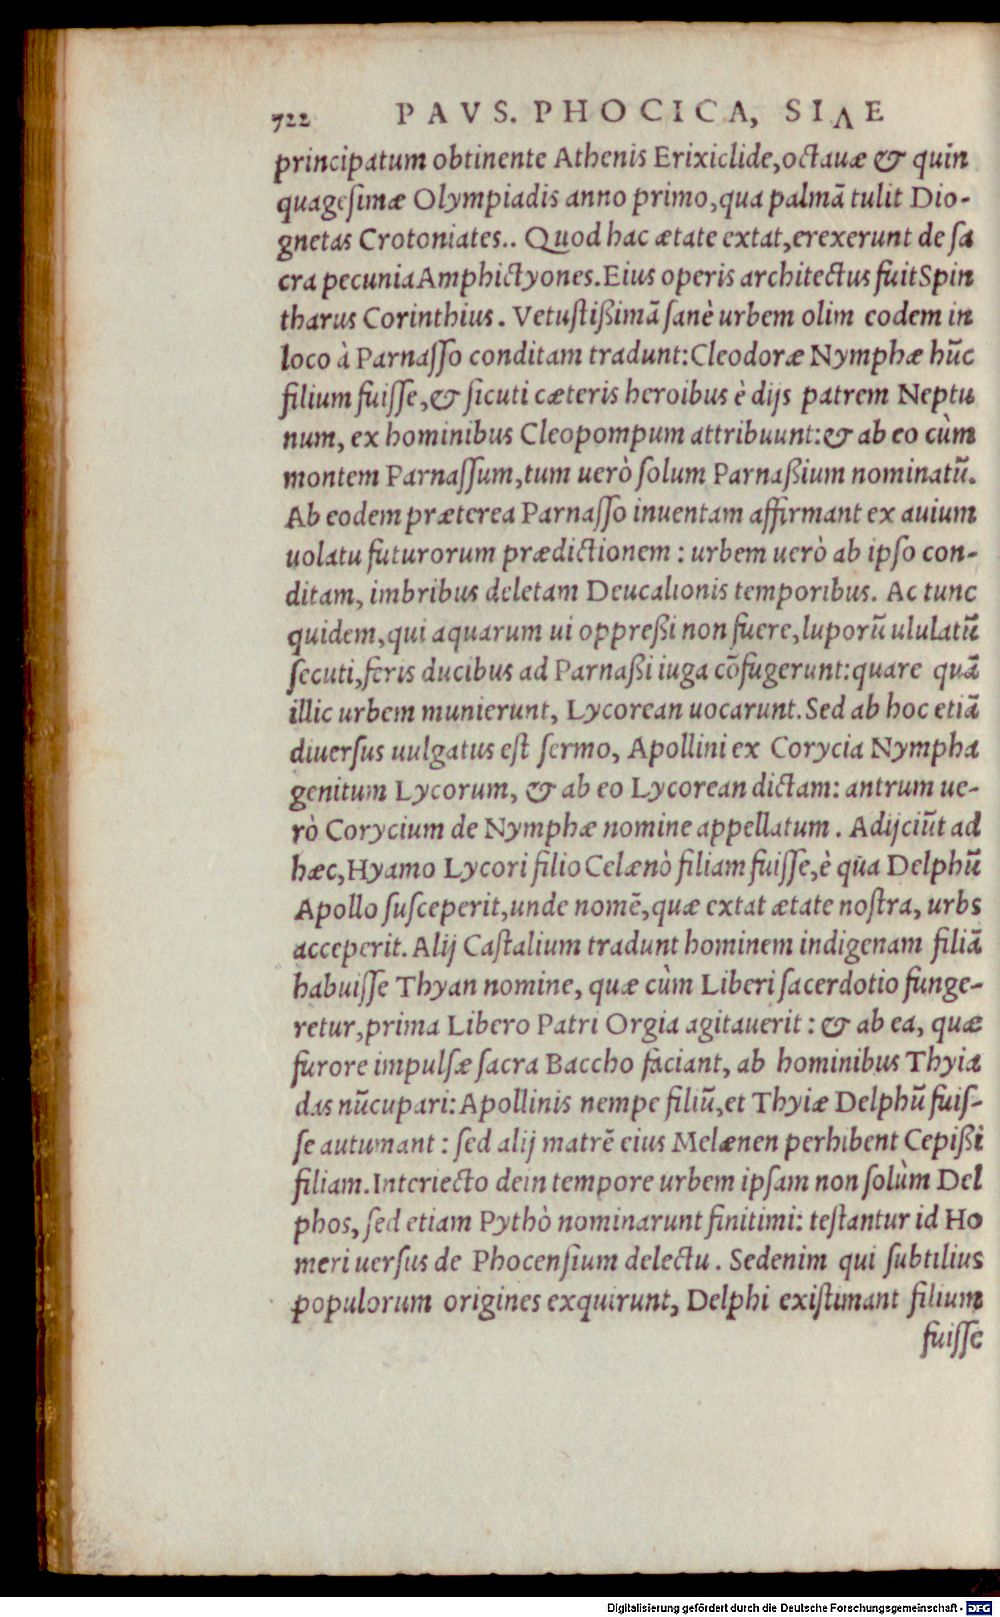 722 PAVS. PHOCICA, SIΛE
principatum obtinente Athenis Erixiclide,octauæ & quin
quagesimæ Olympiadis anno primo,qua palmã tulit Dio-
gnetas Crotoniates.. Quod hac ætate extat,erexerunt de sa
cra pecunia Amphictyones. Eius operis architectus fuit Spin
tharus Corinthius. Vetustißimã sanè urbem olim eodem in
loco à Parnasso conditam tradunt: Cleodoræ Nymphæ hũc
filium fuisse,& sicuti cæteris heroibus è dijs patrem Neptu
num, ex hominibus Cleopompum attribuunt:& ab eo cùm
montem Parnassum,tum uerò solum Parnaßium nominatũ.
Ab eodem præterea Parnasso inuentam affirmant ex auium
uolatu futurorum prædictionem : urbem uerò ab ipso con-
ditam, imbribus deletam Deucalionis temporibus. Ac tunc
quidem,qui aquarum ui oppreßi non fuere,luporũ ululatũ
secuti,feris ducibus ad Parnaßi iuga cõfugerunt:quare quã
illic urbem munierunt, Lycorean uocarunt. Sed ab hoc etiã
diuersus uulgatus est sermo, Apollini ex Corycia Nympha
genitum Lycorum, & ab eo Lycorean dictam: antrum ue-
rò Corycium de Nymphæ nomine appellatum. Adijciũt ad
hæc,Hyamo Lycori filio Celænò filiam fuisse,è qũa Delphũ
Apollo susceperit,unde nomẽ,quæ extat ætate nostra, urbs
acceperit. Alij Castalium tradunt hominem indigenam filiã
habuisse Thyan nomine, quæ cùm Liberi sacerdotio funge-
retur,prima Libero Patri Orgia agitauerit : & ab ea, quæ
furore impulsæ sacra Baccho faciant, ab hominibus Thyia
das nũcupari: Apollinis nempe filiũ,et Thyiæ Delphũ fuis-
se autumant : sed alij matrẽ eius Melænen perhibent Cepißi
filiam. Interiecto dein tempore urbem ipsam non solùm Del
phos, sed etiam Pythò nominarunt finitimi: testantur id Ho
meri uersus de Phocensium delectu. Sedenim qui subtilius
populorum origines exquirunt, Delphi existimant filium
fuisse
Digitalisierung gefördert durch die Deutsche Forschungsgemeinschaft - DFG